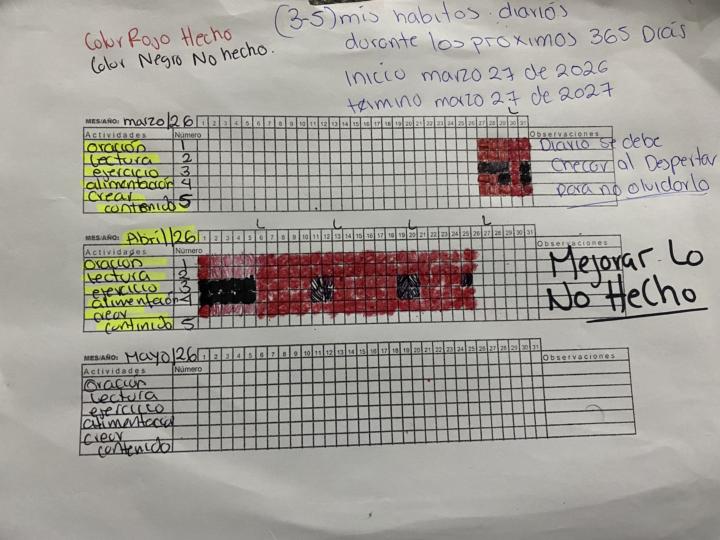 Color Rojo Hecho
Color Negro No hecho.
(3-5) mis habitos diariós
durante los próximos 365 Diás
Inicio marzo 27 de 2026
termino marzo 27 de 2027
L
MES/AÑO: marzo/26 1 2 3 4 5 6 7 8 9 10 11 12 13 14 15 16 17 18 19 20 21 22 23 24 25 26 27 28 29 30 31
Actividades Número Observaciones
oración 1
Lectura 2
ejercicio 3
alimentación 4
Crear
contenido 5
Diario se debe
Checar al Despertar
para no olvidarlo
L L L L
MES/AÑO: Abril/26 1 2 3 4 5 6 7 8 9 10 11 12 13 14 15 16 17 18 19 20 21 22 23 24 25 26 27 28 29 30 31
Actividades Número Observaciones
oración 1
Lectura 2
ejercicio 3
alimentación 4
crear
continido 5
Mejorar Lo
No Hecho
MES/AÑO: Mayo/26 1 2 3 4 5 6 7 8 9 10 11 12 13 14 15 16 17 18 19 20 21 22 23 24 25 26 27 28 29 30 31
Actividades Número Observaciones
Oración
Lectura
ejercicio
alimentación
crear
contenido